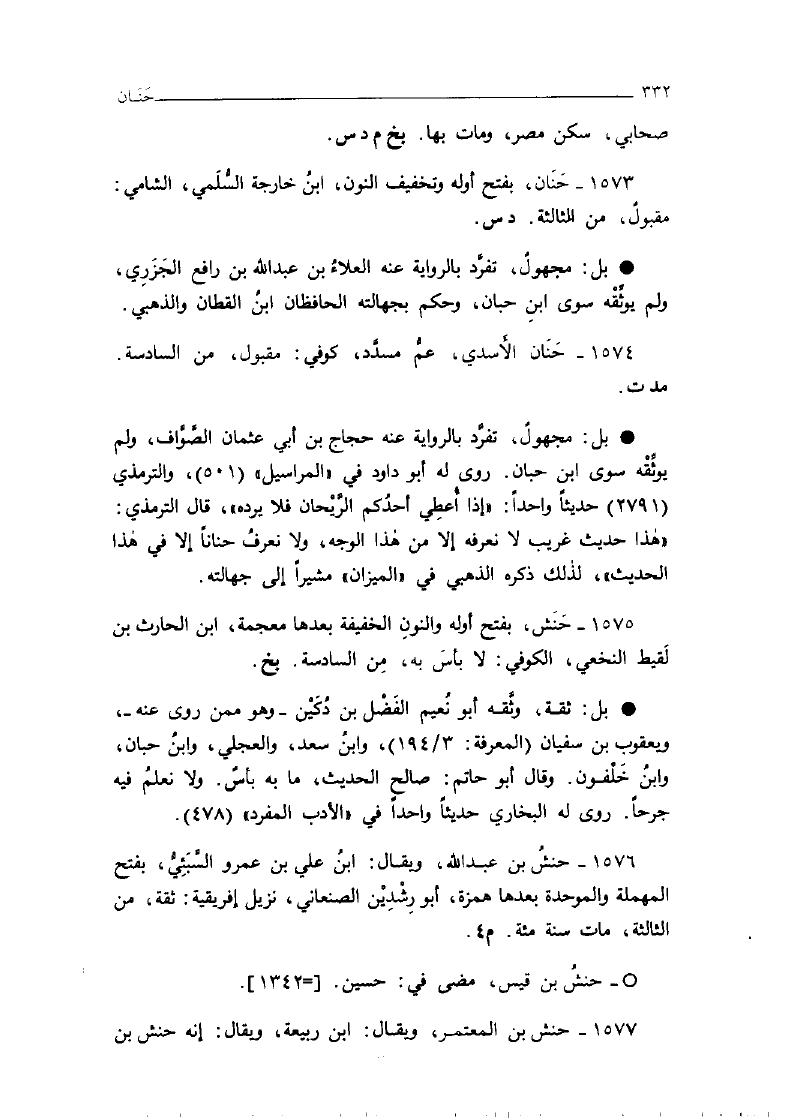 ٣٣٢ حَنَـان
صحابي، سكن مصر، ومات بها. بخ م د س.
١٥٧٣ ـ حَنَان، بفتح أوله وتخفيف النون، ابنُ خارجة السُّلَمي، الشامي:
مقبولٌ، من الثالثة. د س.
● بل: مجهولٌ، تفرَّد بالرواية عنه العلاءُ بن عبدالله بن رافع الجَزَرِي،
ولم يوثِّقْه سوى ابنِ حبان، وحكم بجهالته الحافظان ابنُ القطان والذهبي.
١٥٧٤ ـ حَنَان الأَسدي، عمُّ مسدَّد، كوفي: مقبول، من السادسة.
مد ت.
● بل: مجهولٌ، تفرَّد بالرواية عنه حجاج بن أبي عثمان الصَّوَّاف، ولم
يوثِّقْه سوى ابن حبان. روى له أبو داود في «المراسيل» (٥٠١)، والترمذي
(٢٧٩١) حديثاً واحداً: «إذا أُعطِي أحدُكم الرَّيْحان فلا يرده»، قال الترمذي:
«هٰذا حديث غريب لا نعرفه إلا من هٰذا الوجه، ولا نعرفُ حناناً إلا في هٰذا
الحديث»، لذٰلك ذكره الذهبي في «الميزان» مشيراً إلى جهالته.
١٥٧٥ ـ حَنَش، بفتح أوله والنونِ الخفيفة بعدها معجمة، ابن الحارث بن
لَقيط النخعي، الكوفي: لا بأسَ به، مِن السادسة. بخ.
● بل: ثقـة، وثَّقـه أبو نُعيم الفَضْل بن دُكَيْن ـ وهو ممن روى عنه ـ،
ويعقوب بن سفيان (المعرفة: ٣/١٩٤)، وابنُ سعد، والعجلي، وابنُ حبان،
وابنُ خَلْفـون. وقال أبو حاتم: صالح الحديث، ما به بأسٌ. ولا نعلمُ فيه
جرحاً. روى له البخاري حديثاً واحداً في «الأدب المفرد» (٤٧٨).
١٥٧٦ ـ حنشُ بن عبـدالله، ويقـال: ابنُ علي بن عمرو السَّبَئِيُّ، بفتح
المهملة والموحدة بعدها همزة، أبو رِشْدِيْن الصنعاني، نزيل إفريقية: ثقة، من
الثالثة، مات سنة مئة. م٤.
○ ـ حنشُ بن قيس، مضى في: حسين. [=١٣٤٢].
١٥٧٧ ـ حنش بن المعتمـر، ويقـال: ابن ربيعة، ويقال: إنه حنش بن